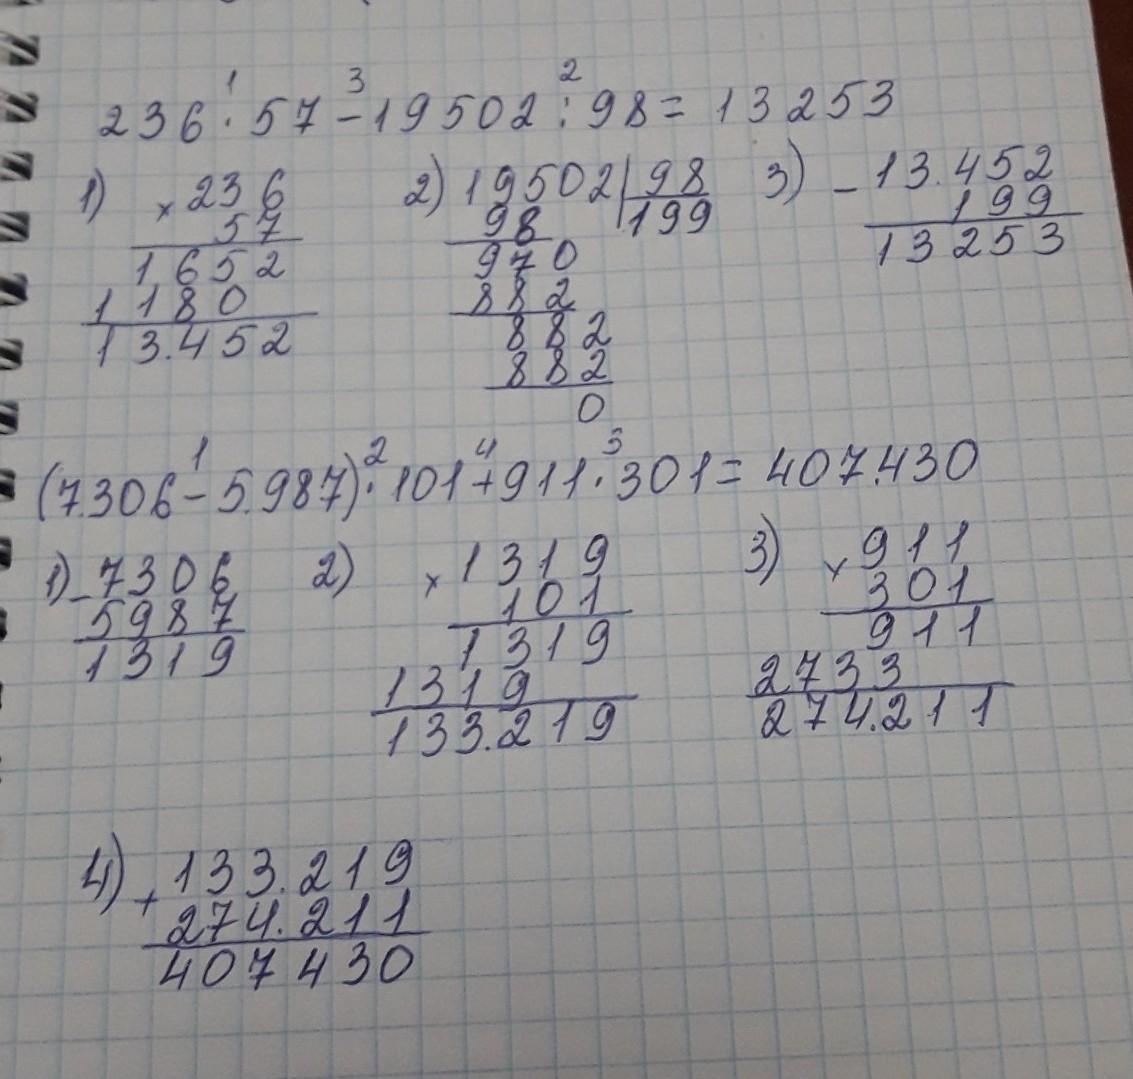 236 · 57 - 19502 : 98 = 13253
1 3 2
1) × 236 2) 19502 | 98 3) - 13.452
57 98 199 199
1652 970 13253
1180 882
13.452 882
882
0
1 2 4 3
(7.306 - 5.987) · 101 + 911 · 301 = 407.430
1) - 7306 2) × 1319 3) × 911
5987 101 301
1319 1319 911
1319 2733
133.219 274.211
4) + 133.219
274.211
407430